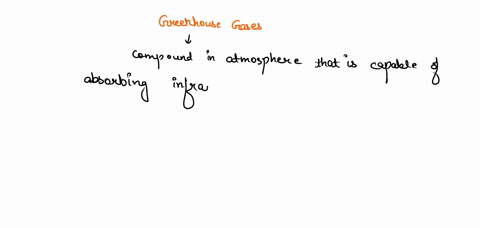 Greenhouse Gases
compound in atmosphere that is capable of
absorbing infra